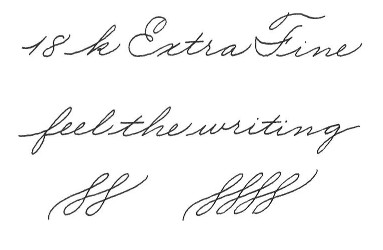 18 k Extra Fine
feel the writing